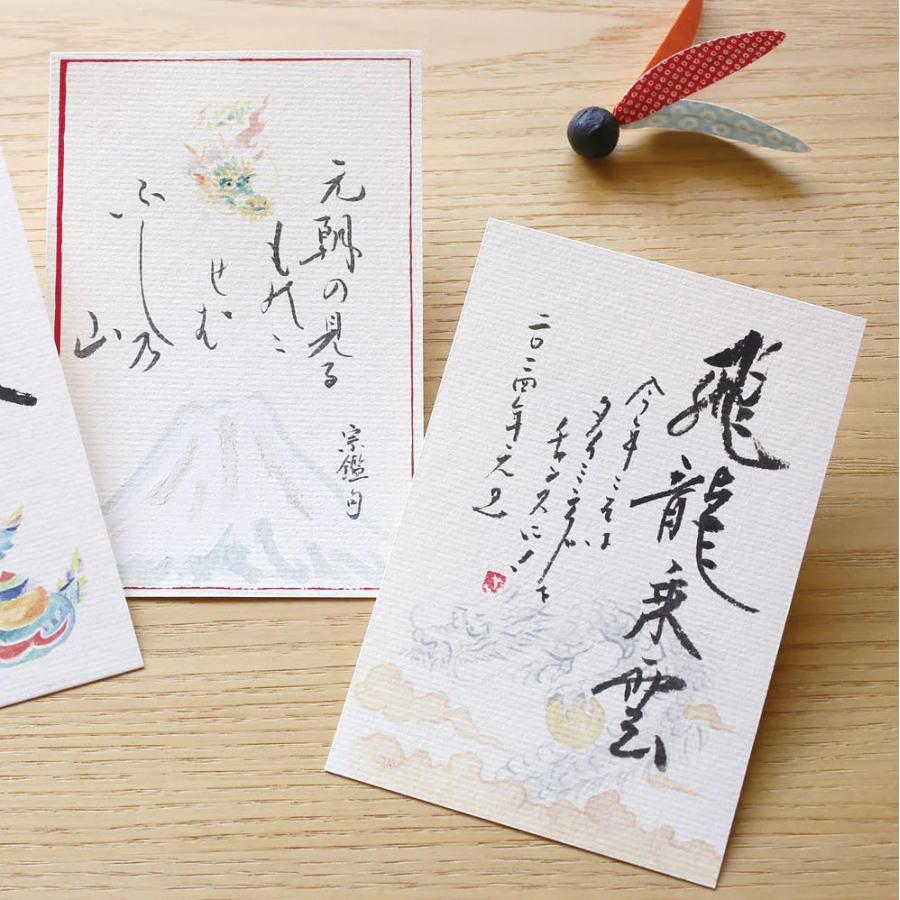 元朝の見る
ものに
せむ
ふし乃
山
宗鑑句
飛龍乗雲
今年こそは
タイミングを
チャンスに!
二〇二四年元旦